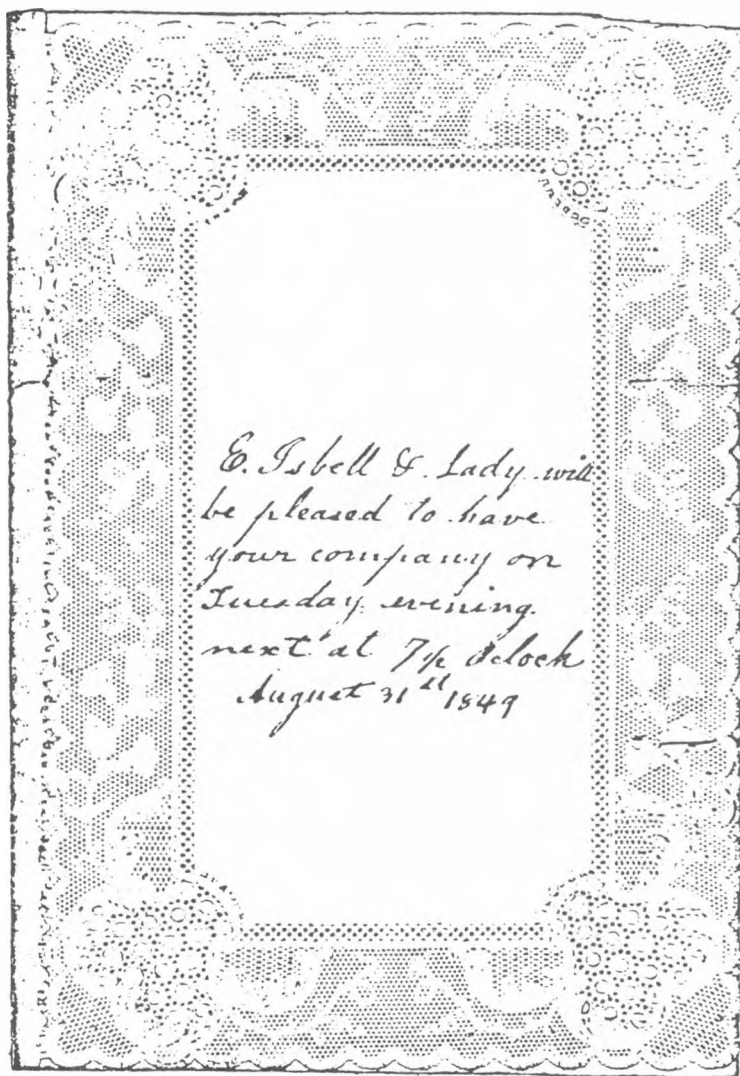 E. Isbell & Lady will
be pleased to have
your company on
Tuesday evening
next at 7½ oclock
August 31st 1849